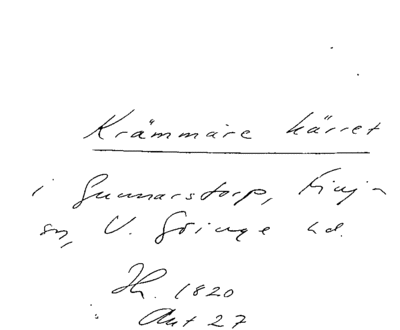 Krämmäre kärret
i Gunnarstorp, Finja
sn, V. Göinge hd.
Jh. 1820
Akt 27